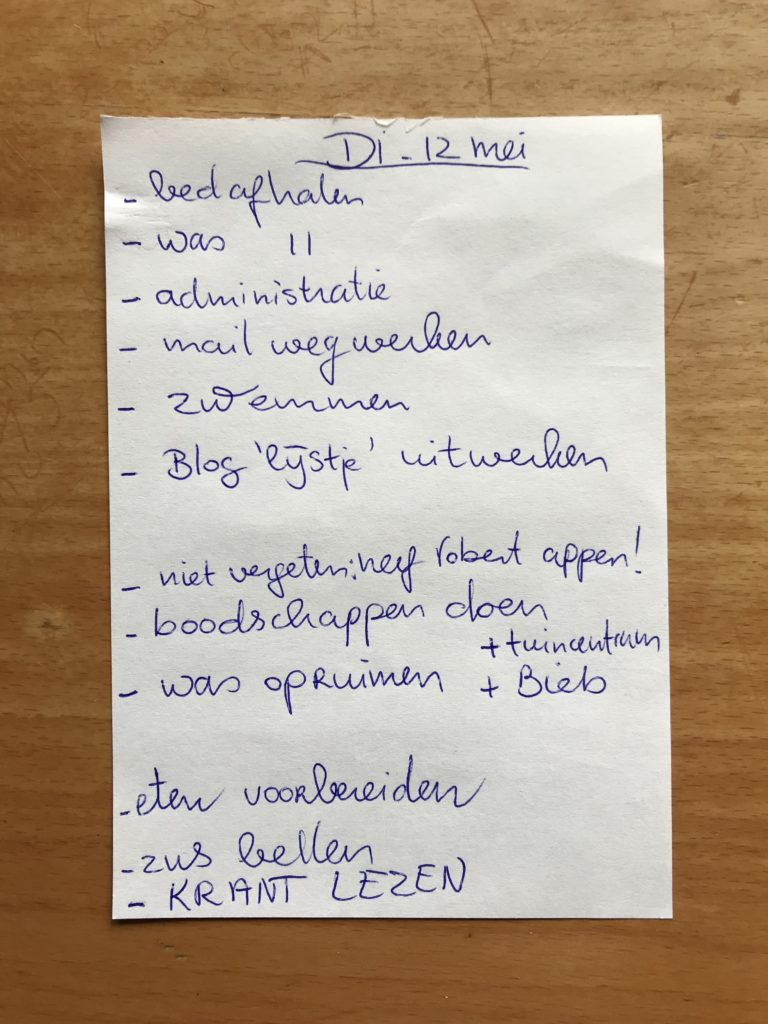 Di - 12 mei
- bed afhalen
- was II
- administratie
- mail wegwerken
- zwemmen
- Blog 'lijstje' uitwerken
- niet vergeten: neef robert appen!
- boodschappen doen
+ tuincentrum
- was opruimen + Bieb
- eten voorbereiden
- zus bellen
- KRANT LEZEN